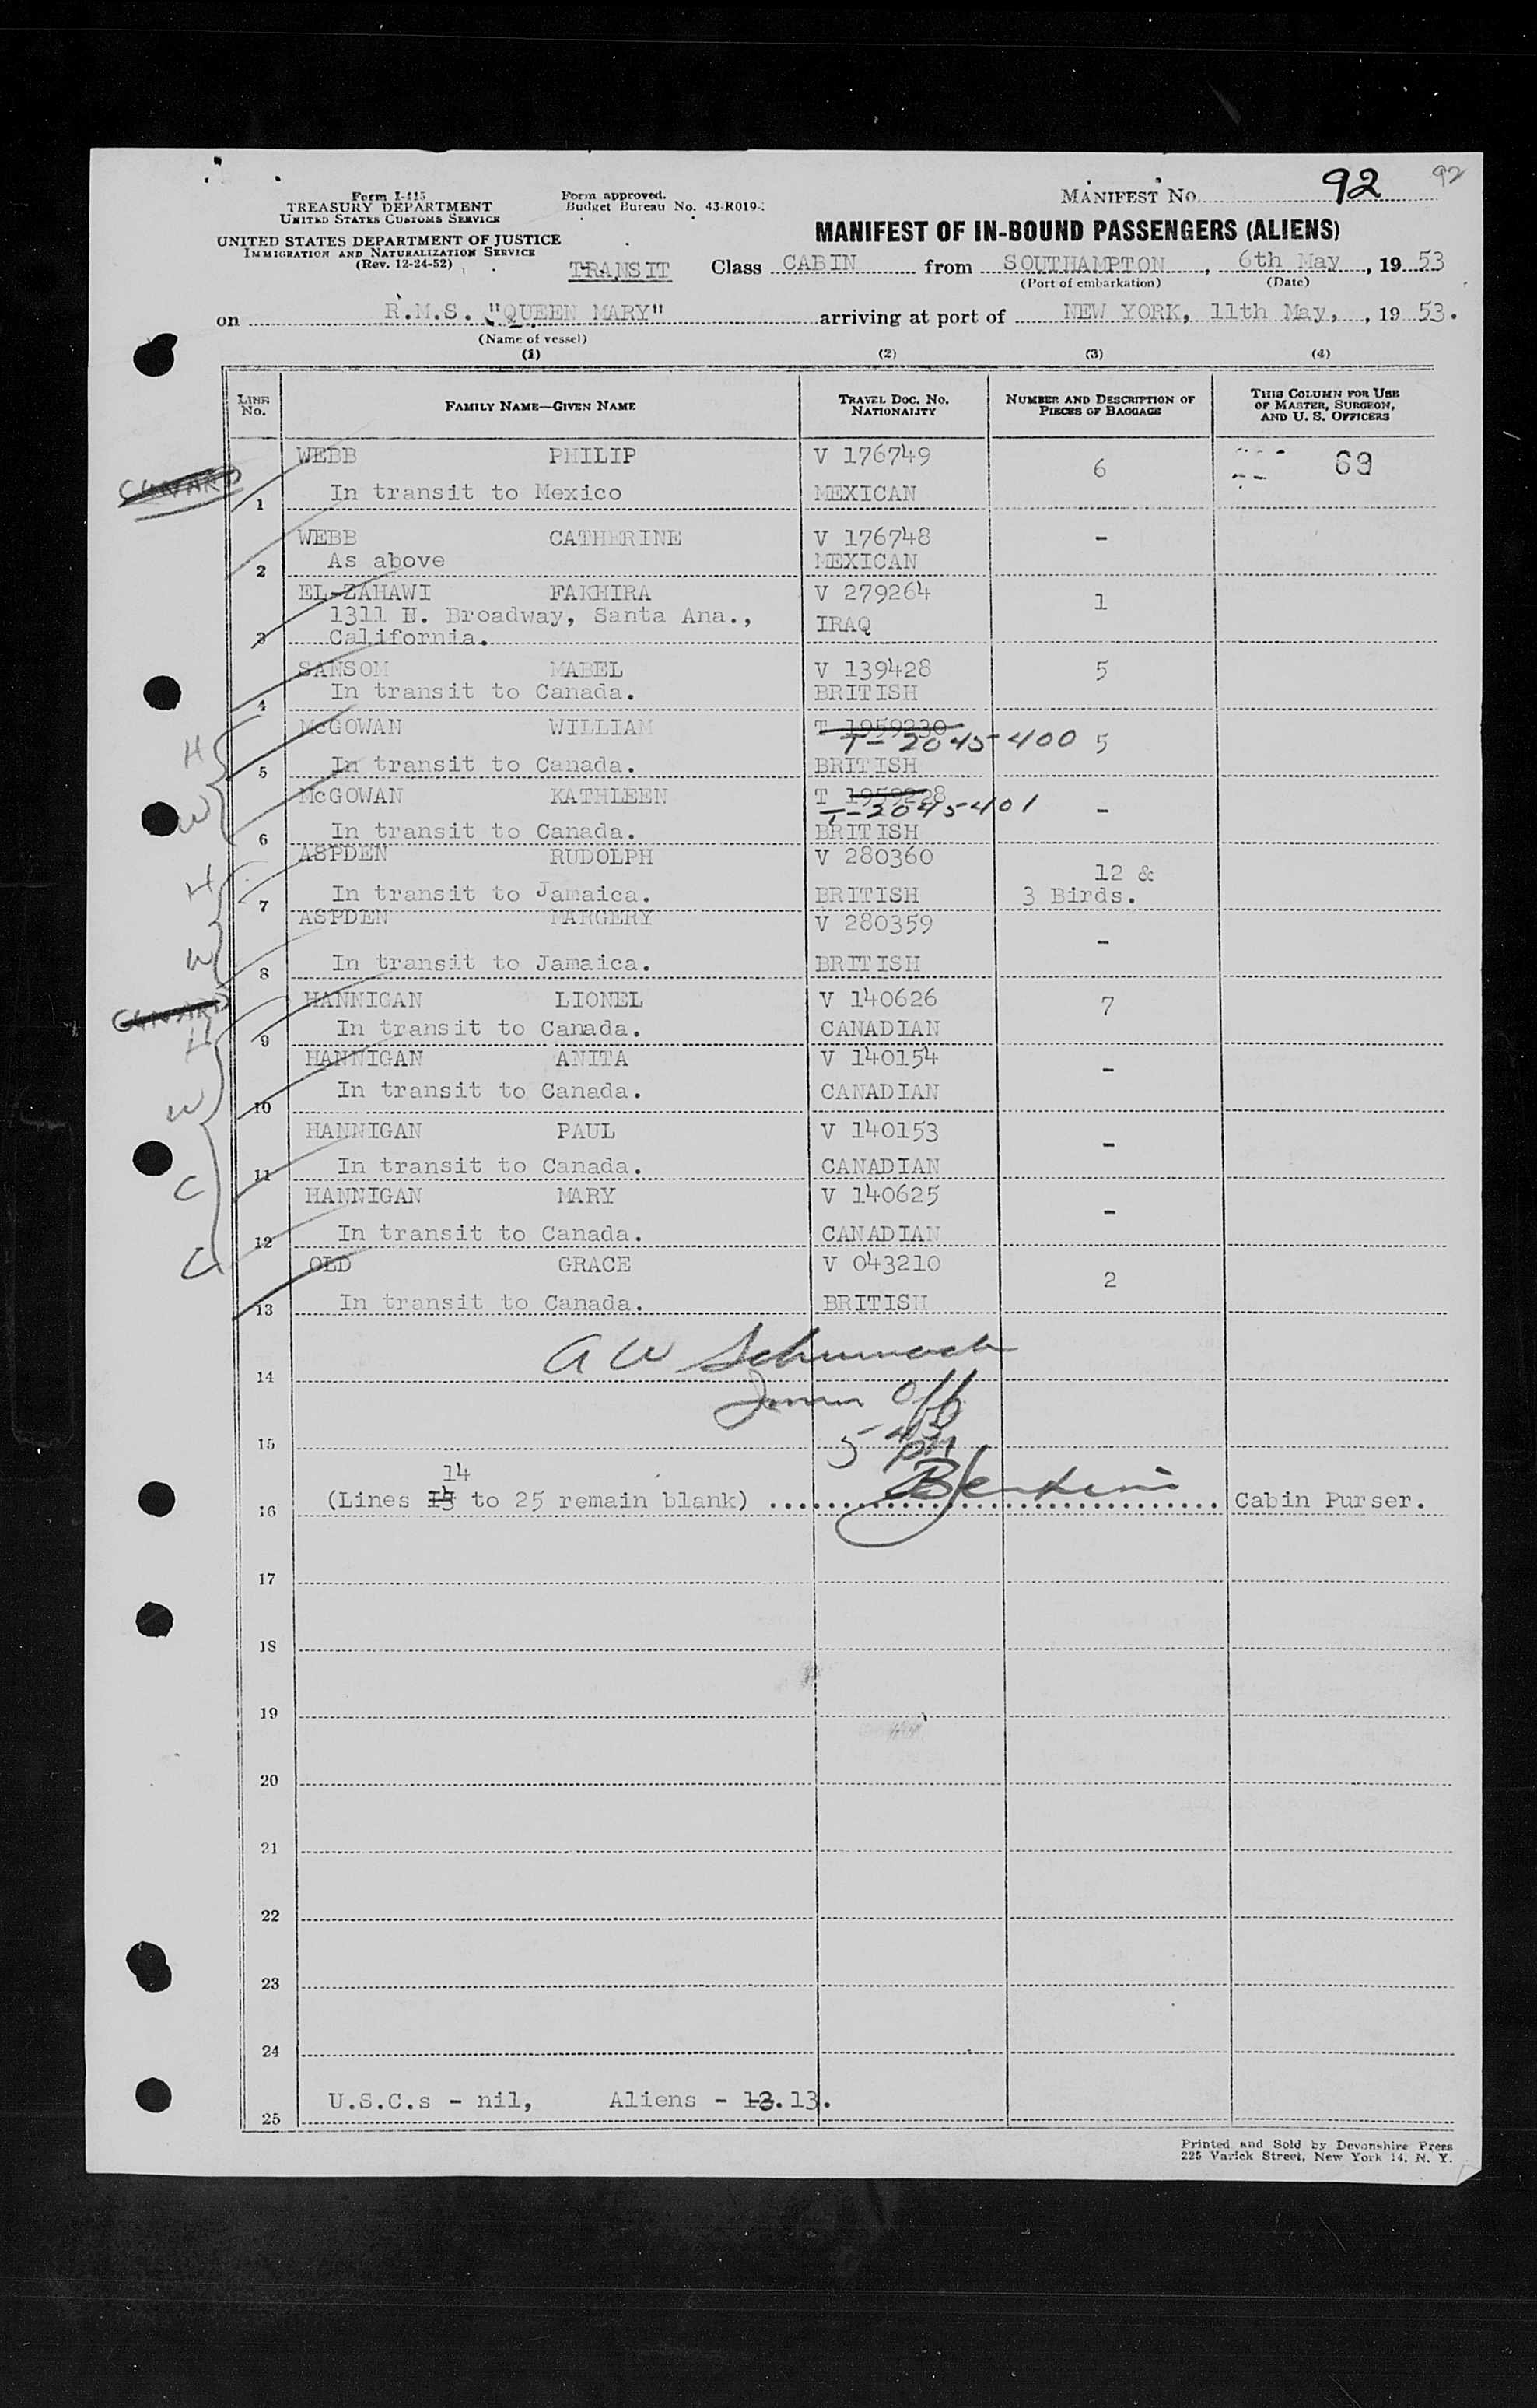 92
Form I-415
TREASURY DEPARTMENT
UNITED STATES CUSTOMS SERVICE
UNITED STATES DEPARTMENT OF JUSTICE
IMMIGRATION AND NATURALIZATION SERVICE
(Rev. 12-24-52)
Form approved.
Budget Bureau No. 43-R019-
MANIFEST No. 92
MANIFEST OF IN-BOUND PASSENGERS (ALIENS)
TRANSIT Class CABIN from SOUTHAMPTON, 6th May, 1953
(Port of embarkation) (Date)
on R.M.S. "QUEEN MARY" arriving at port of NEW YORK, 11th May, , 1953.
(Name of vessel)
(1) (2) (3) (4)
LINE No. FAMILY NAME—GIVEN NAME TRAVEL DOC. No. NATIONALITY NUMBER AND DESCRIPTION OF PIECES OF BAGGAGE THIS COLUMN FOR USE OF MASTER, SURGEON, AND U. S. OFFICERS
WEBB PHILIP V 176749 6 69
CUNARD
1 In transit to Mexico MEXICAN
WEBB CATHERINE V 176748 -
2 As above MEXICAN
EL-ZAHAWI FAKHIRA V 279264 1
1311 N. Broadway, Santa Ana., IRAQ
3 California.
SANSOM MABEL V 139428 5
4 In transit to Canada. BRITISH
McGOWAN WILLIAM T 1959230
H T-2045400 5
5 In transit to Canada. BRITISH
McGOWAN KATHLEEN T 1959228
W T-2045401 -
6 In transit to Canada. BRITISH
ASPDEN RUDOLPH V 280360 12 &
H 7 In transit to Jamaica. BRITISH 3 Birds.
ASPDEN MARGERY V 280359 -
W 8 In transit to Jamaica. BRITISH
HANNIGAN LIONEL V 140626 7
CUNARD
H 9 In transit to Canada. CANADIAN
HANNIGAN ANITA V 140154 -
W 10 In transit to Canada. CANADIAN
HANNIGAN PAUL V 140153 -
C 11 In transit to Canada. CANADIAN
HANNIGAN MARY V 140625 -
C 12 In transit to Canada. CANADIAN
OLD GRACE V 043210 2
13 In transit to Canada. BRITISH
A W Schumack
14
Imm Off
15 5 43 pm
14
16 (Lines to 25 remain blank) BJenkins Cabin Purser.
17
18
19
20
21
22
23
24
25 U.S.C.s - nil, Aliens - 13.
Printed and Sold by Devonshire Press
225 Varick Street, New York 14, N. Y.